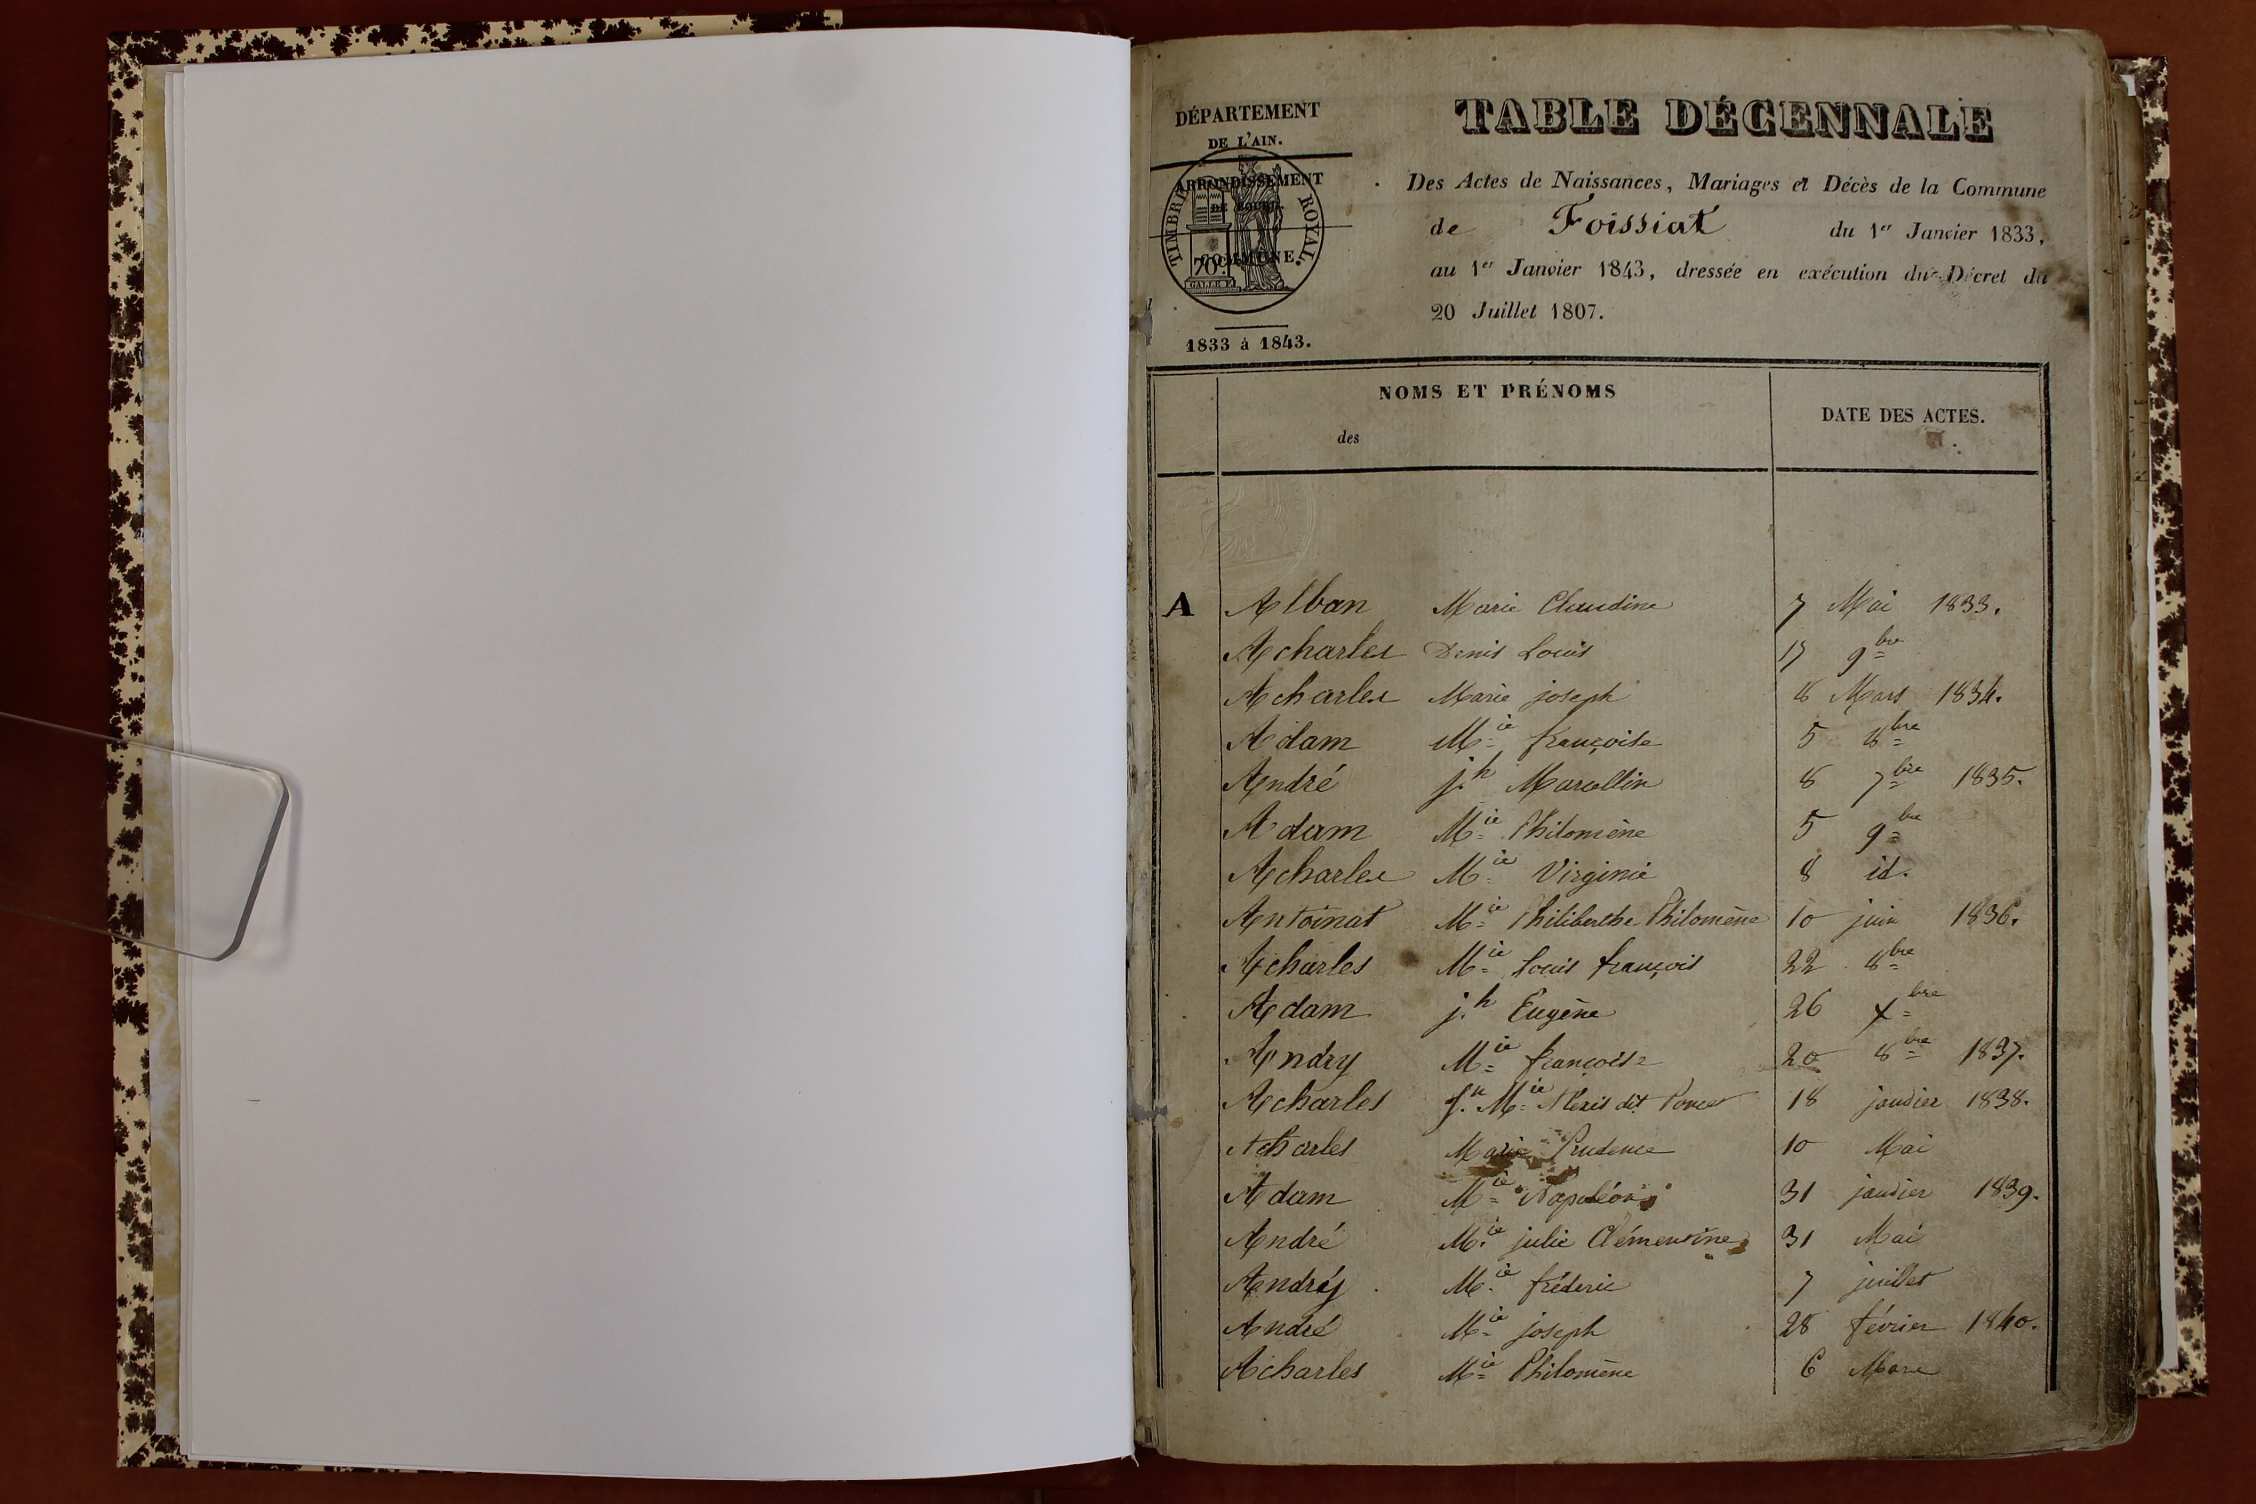 DÉPARTEMENT
DE L'AIN.
ARRONDISSEMENT
DE BOURG.
COMMUNE.
TIMBRE ROYAL.
70c
GALLE F.
1833 à 1843.
TABLE DÉCENNALE
Des Actes de Naissances, Mariages et Décès de la Commune
de Foissiat du 1er Janvier 1833,
au 1er Janvier 1843, dressée en exécution du Décret du
20 Juillet 1807.
NOMS ET PRÉNOMS
des
DATE DES ACTES.
A Alban Marie Claudine 7 Mai 1833.
Acharles Denis Louis 17 9bre
Acharles Marie joseph 8 Mars 1834.
Adam Mie françoise 5 8bre
André j.h Marcellin 8 7bre 1835.
Adam Mie Philomène 5 9bre
Acharles Mie Virginie 8 id.
Antoinat Mie Philiberthe Philomène 10 juin 1836.
Acharles Mie Louis françois 22 8bre
Adam j.h Eugène 26 Xbre
Andry Mie françoise 20 8bre 1837.
Acharles Mie Alexis dit Poncet 18 janvier 1838.
Acharles Marie Prudence 10 Mai
Adam Mie Napoléon 31 janvier 1839.
André M.ie julie Clémentine 31 Mai
Andréy M.ie fréderic 7 juillet
André Mie joseph 28 février 1840.
Acharles Mie Philomène 6 Mars